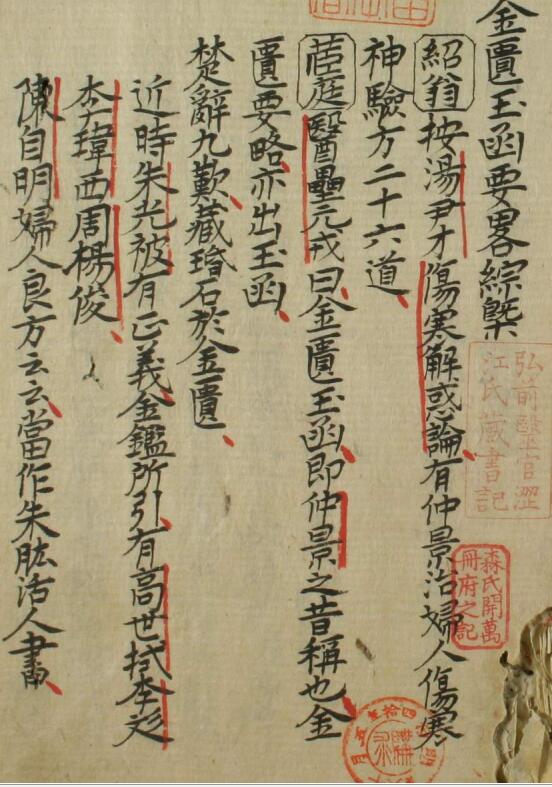 金匱玉函要畧綜槩
紹翁按湯尹才傷寒解惑論有仲景治婦人傷寒
神驗方二十六道
茝庭醫壘元戎曰金匱玉函即仲景之昔稱也金
匱要略亦出玉函
楚辭九歎藏瑉石於金匱
近時朱光被有正義金鑑所引有高世栻李彣
李瑋西周楊俊
陳自明婦人良方云云當作朱肱活人書
弘前醫官澀
江氏藏書記
森氏開萬
冊府之記